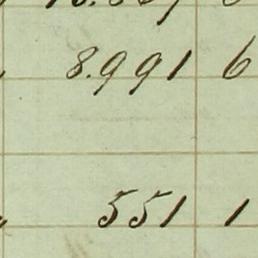 8.991 6
551 1